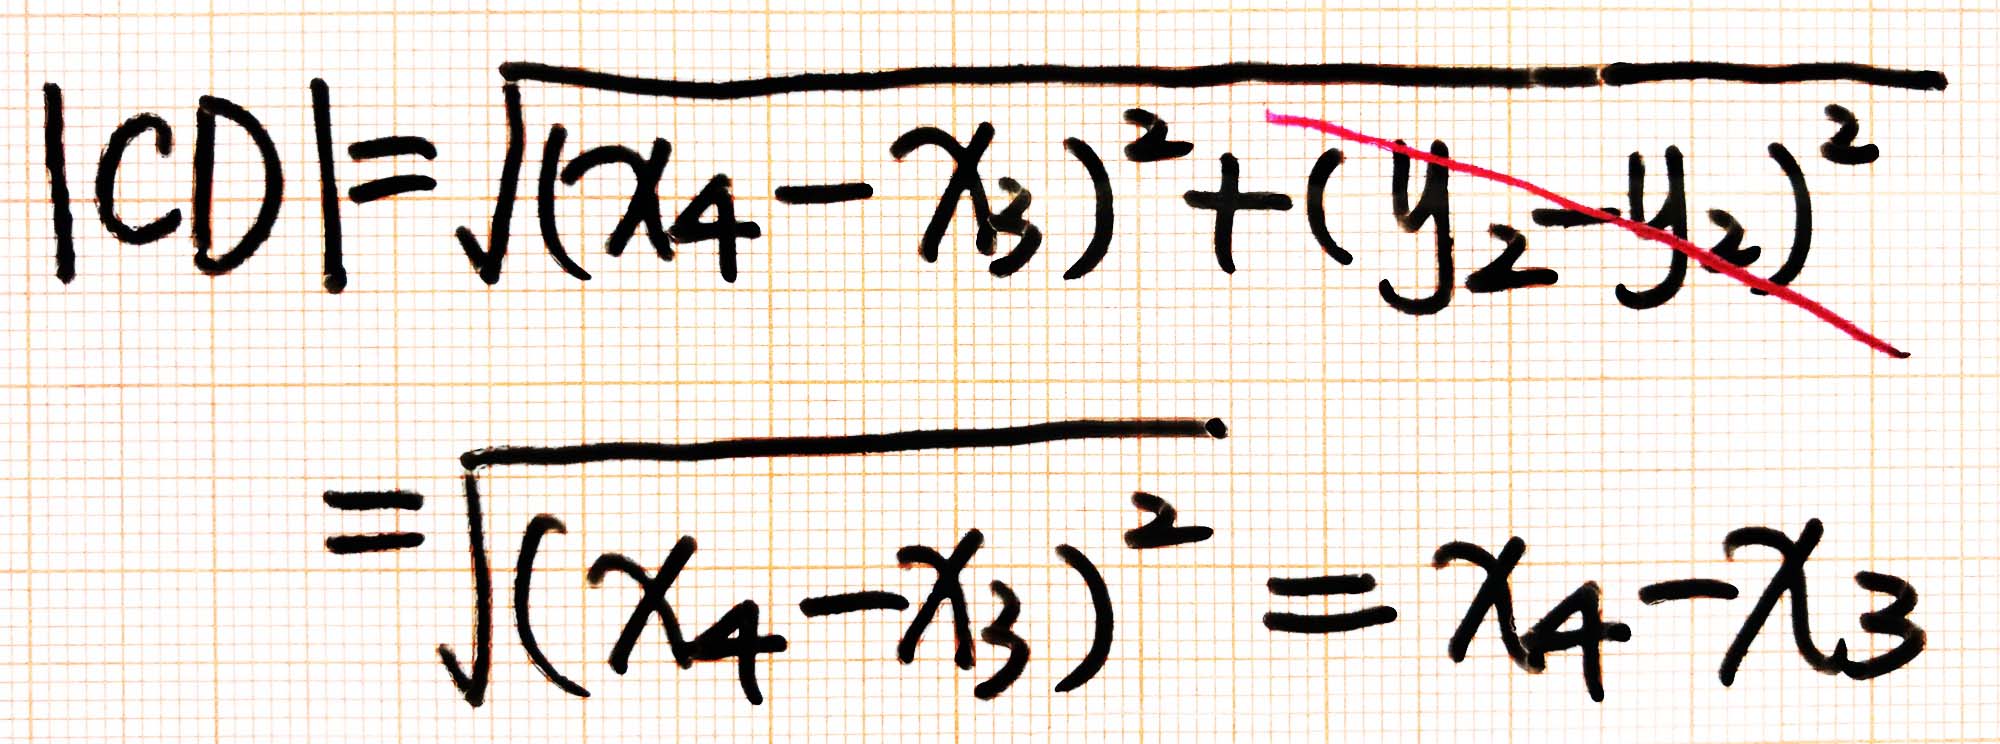 |CD|=√(x₄-x₃)²+(y₂-y₂)²
=√(x₄-x₃)² = x₄-x₃